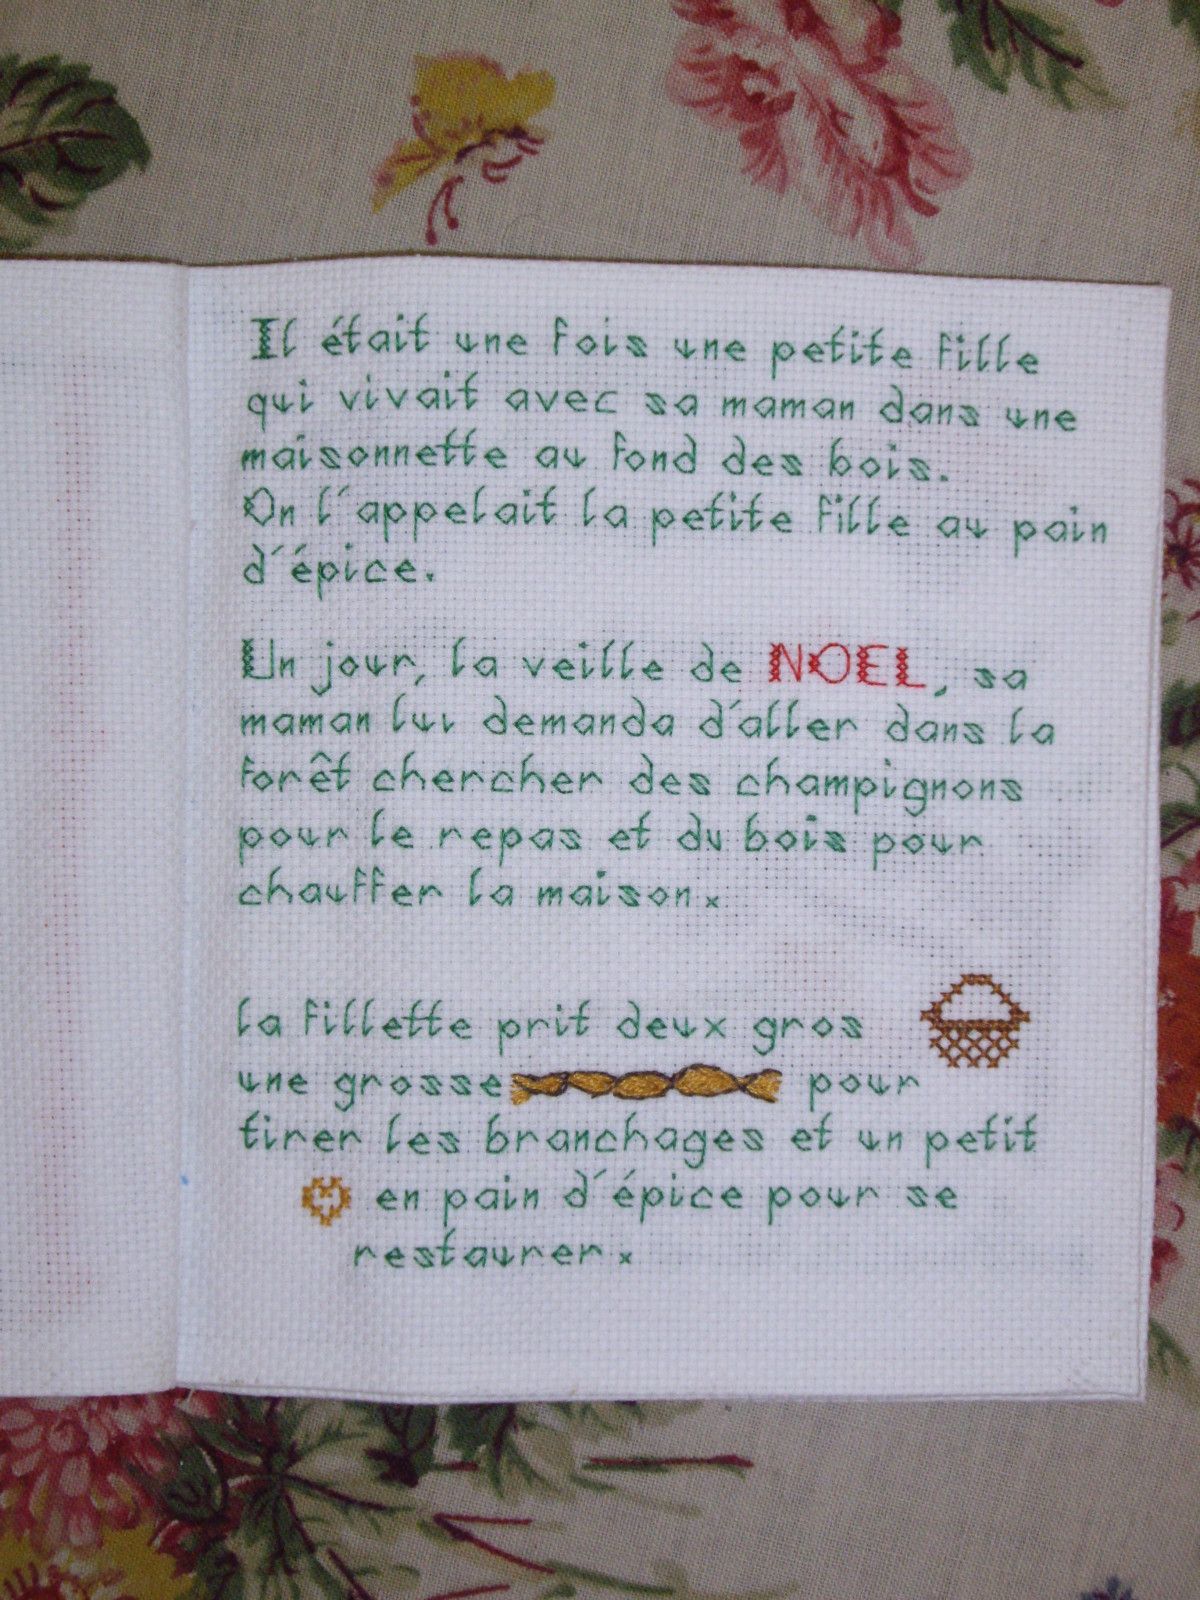 Il était une fois une petite fille
qui vivait avec sa maman dans une
maisonnette au fond des bois.
On l'appelait la petite fille au pain
d'épice.
Un jour, la veille de NOEL, sa
maman lui demanda d'aller dans la
forêt chercher des champignons
pour le repas et du bois pour
chauffer la maison.
la fillette prit deux gros
une grosse pour
tirer les branchages et un petit
en pain d'épice pour se
restaurer.